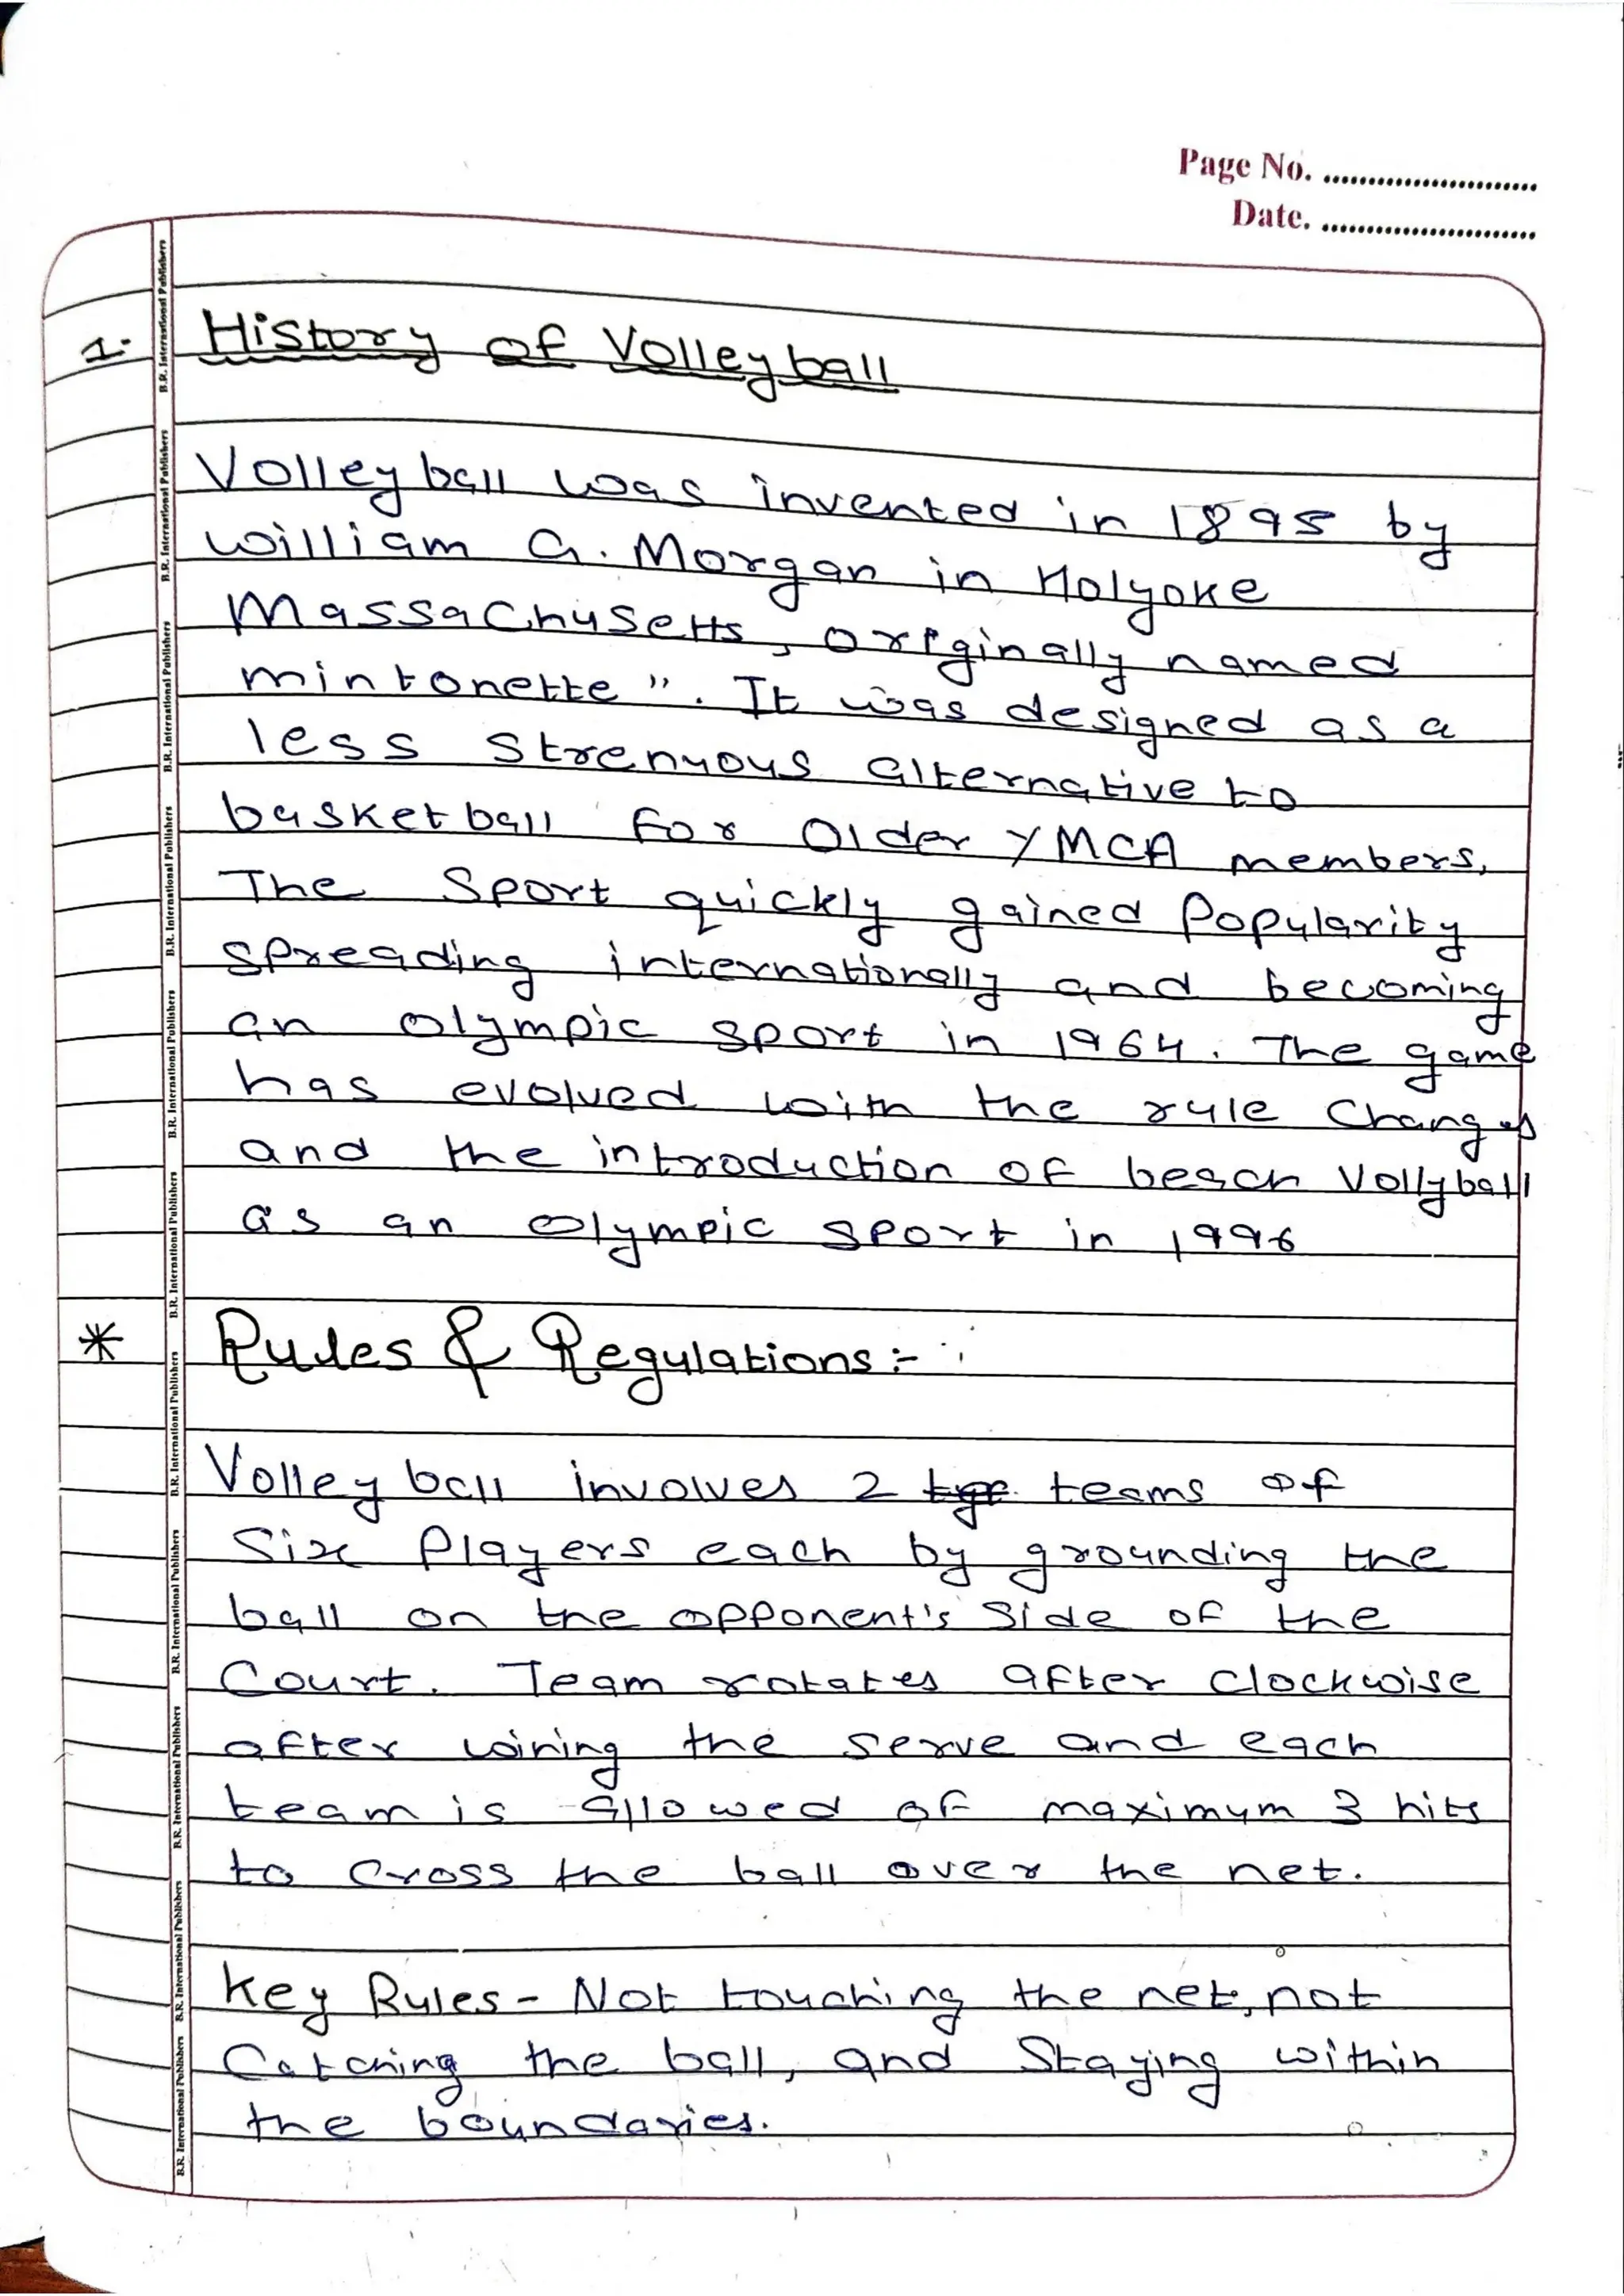 Page No. ........................
Date. ........................
1. History of Volleyball
Volleyball was invented in 1895 by
william G. Morgan in Holyoke
Massachusetts, originally named
mintonette". It was designed as a
less strenuous alternative to
basketball for Older YMCA members,
The Sport quickly gained Popularity
spreading internationally and becoming
an olympic sport in 1964. The game
has evolved with the rule Changes
and the introduction of beach Vollyball
as an olympic sport in 1996
* Rules & Regulations:-
Volleyball involves 2 teams of
Six Players each by grounding the
ball on the opponent's Side of the
Court. Team rotates after Clockwise
after wining the serve and each
team is allowed of maximum 3 hits
to Cross the ball over the net.
Key Rules - Not touching the net, not
Catching the ball, and Staying within
the boundaries.
B.R. International Publishers B.R. International Publishers B.R. International Publishers B.R. International Publishers B.R. International Publishers B.R. International Publishers B.R. International Publishers B.R. International Publishers B.R. International Publishers B.R. International Publishers B.R. International Publishers